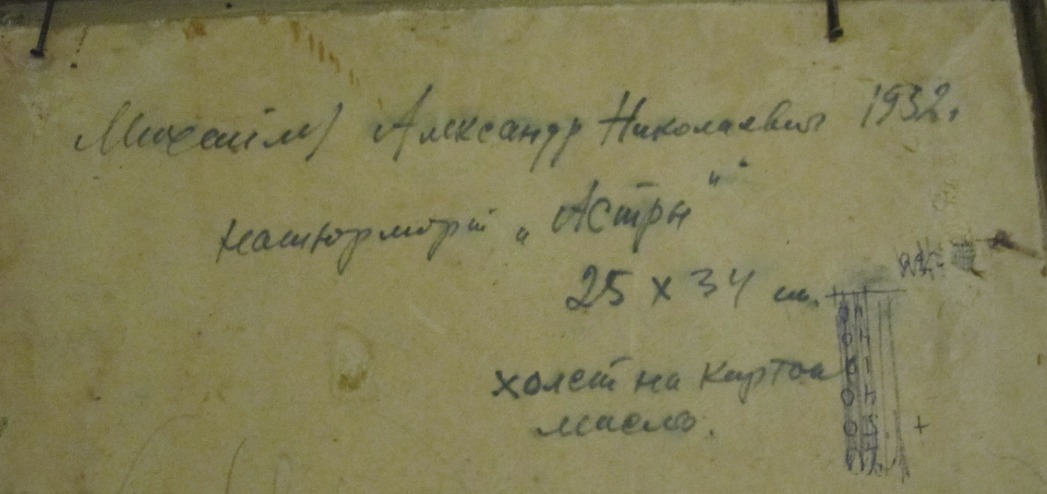 Александр Николаевич 1932г.
натюрморт „Астры"
25 x 34 см.
холст на картон
масло.